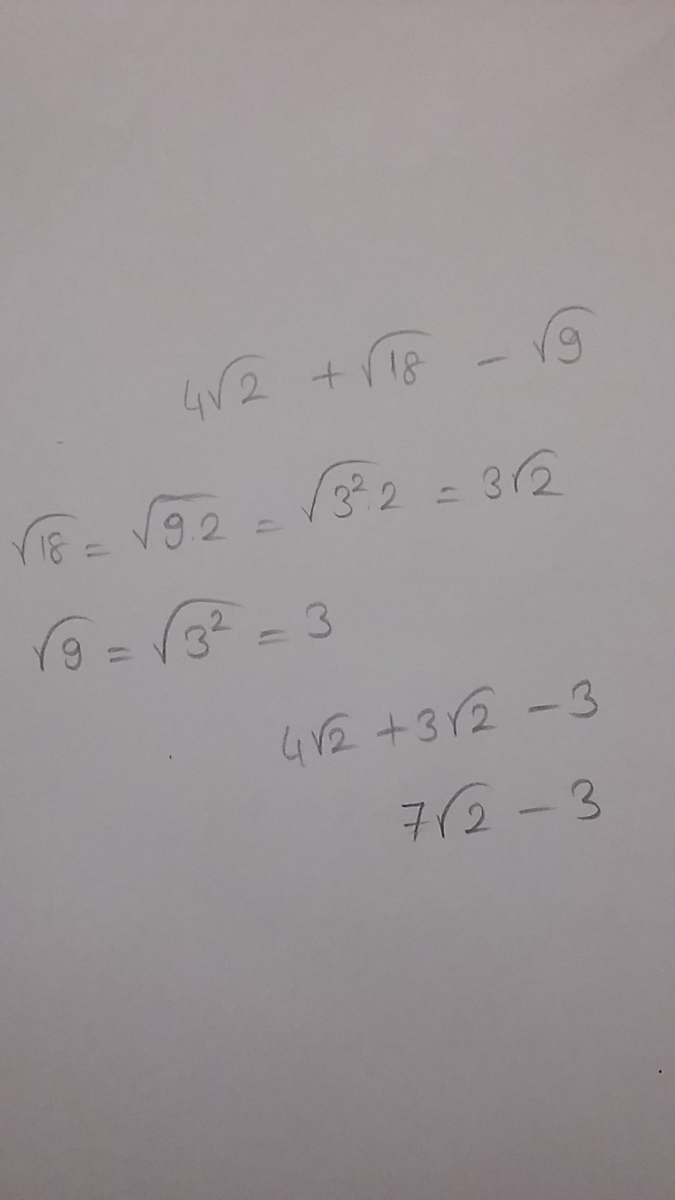 4√2 + √18 − √9
√18 = √9.2 = √3².2 = 3√2
√9 = √3² = 3
4√2 + 3√2 − 3
7√2 − 3